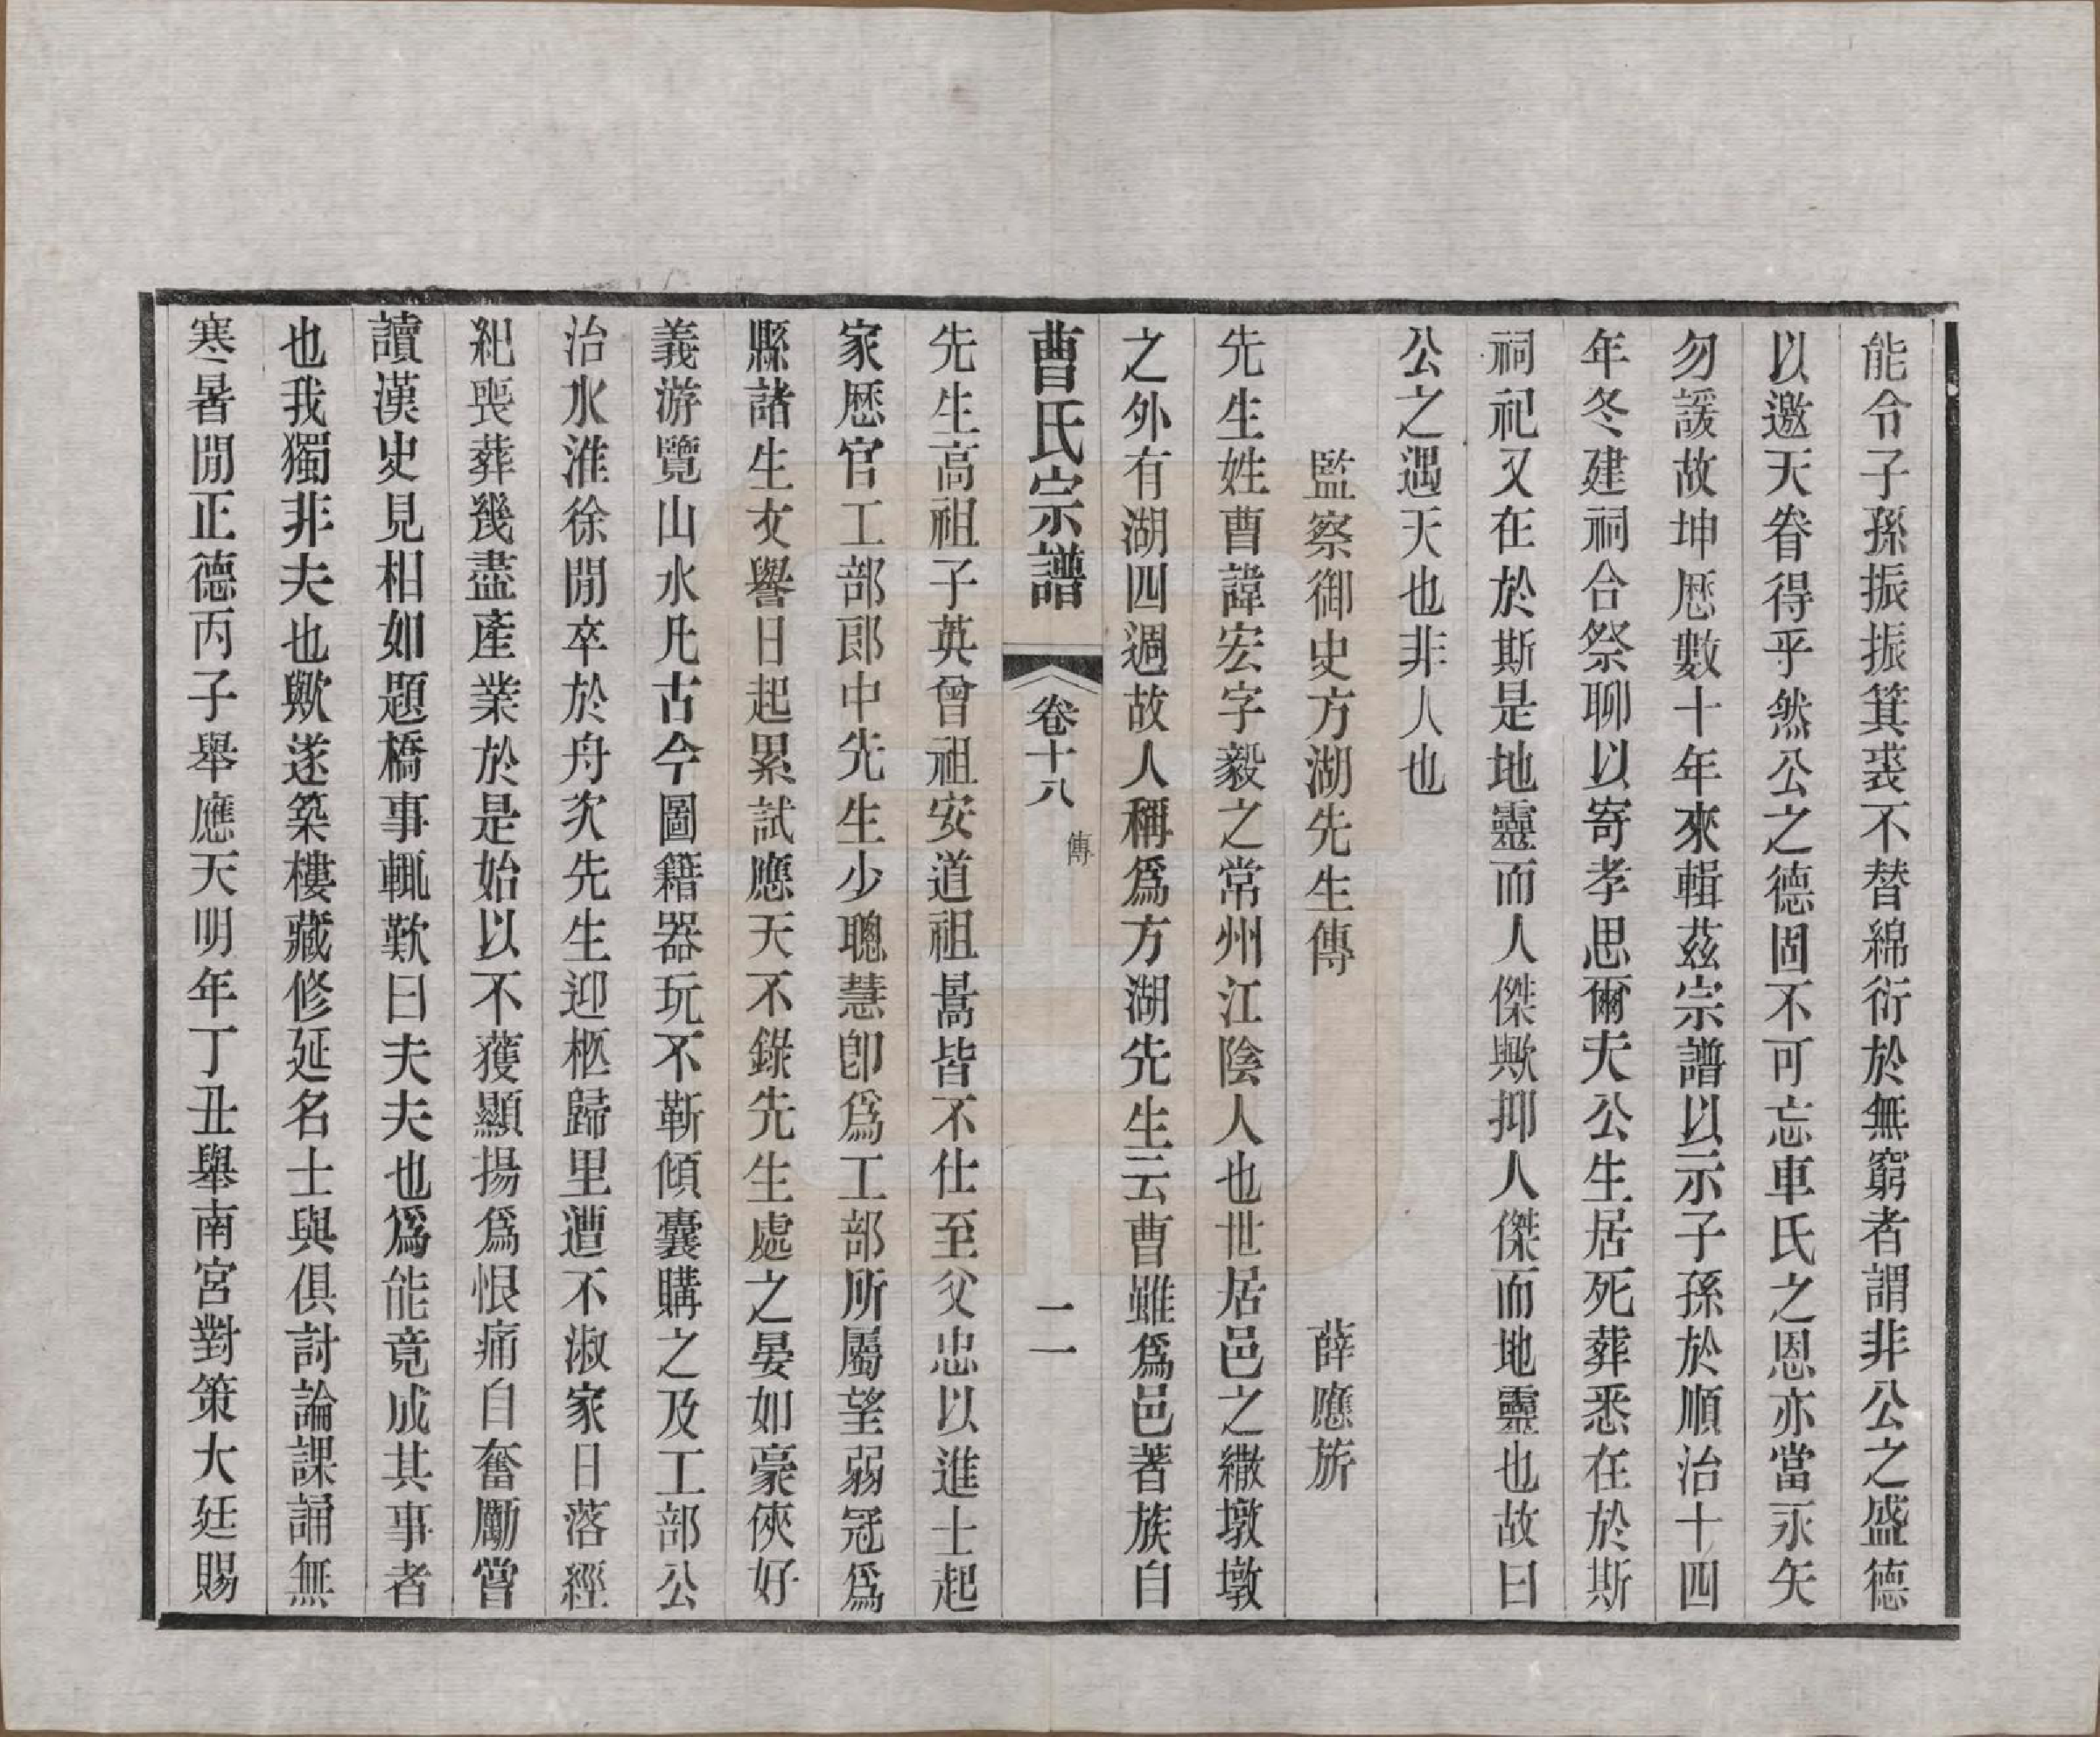 能令子孫振振箕裘不替綿衍於無窮者謂非公之盛德
以邀天眷得乎然公之德固不可忘車氏之恩亦當永矢
勿諼故坤厯數十年來輯茲宗譜以示子孫於順治十四
年冬建祠合祭聊以寄孝思爾夫公生居死葬悉在於斯
祠祀又在於斯是地靈而人傑歟抑人傑而地靈也故曰
公之遇天也非人也
監察御史方湖先生傳 薛應旂
先生姓曹諱宏字毅之常州江陰人也世居邑之繖墩墩
之外有湖四週故人稱爲方湖先生云曹雖爲邑著族自
曹氏宗譜 卷十八 傳 二一
先生高祖子英曾祖安道祖暠皆不仕至父忠以進士起
家厯官工部郎中先生少聰慧卽爲工部所屬望弱冠爲
縣諸生文譽日起累試應天不錄先生處之晏如豪俠好
義游覽山水凡古今圖籍器玩不靳傾囊購之及工部公
治水淮徐閒卒於舟次先生迎柩歸里遭不淑家日落經
紀喪葬幾盡產業於是始以不獲顯揚爲恨痛自奮勵嘗
讀漢史見相如題橋事輒歎曰夫夫也爲能竟成其事者
也我獨非夫也歟遂築樓藏修延名士與俱討論課誦無
寒暑閒正德丙子舉應天明年丁丑舉南宮對策大廷賜